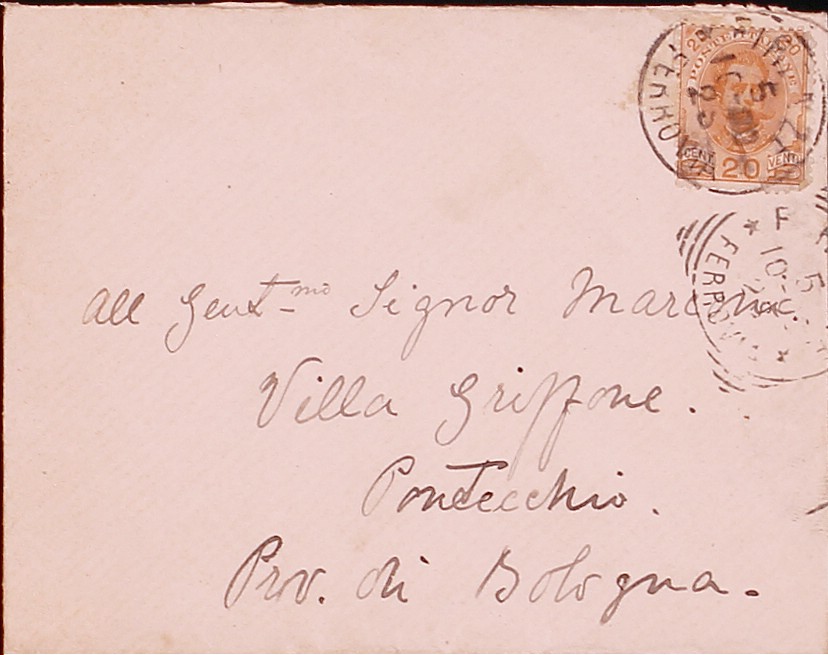 20 20
POSTE ITALIANE
CENT. 20 VENTI
5
10
FERROVIA
F
10
5
FERROVIA
All Gent-mo Signor Marconi.
Villa Griffone.
Pontecchio.
Prov. di Bologna.